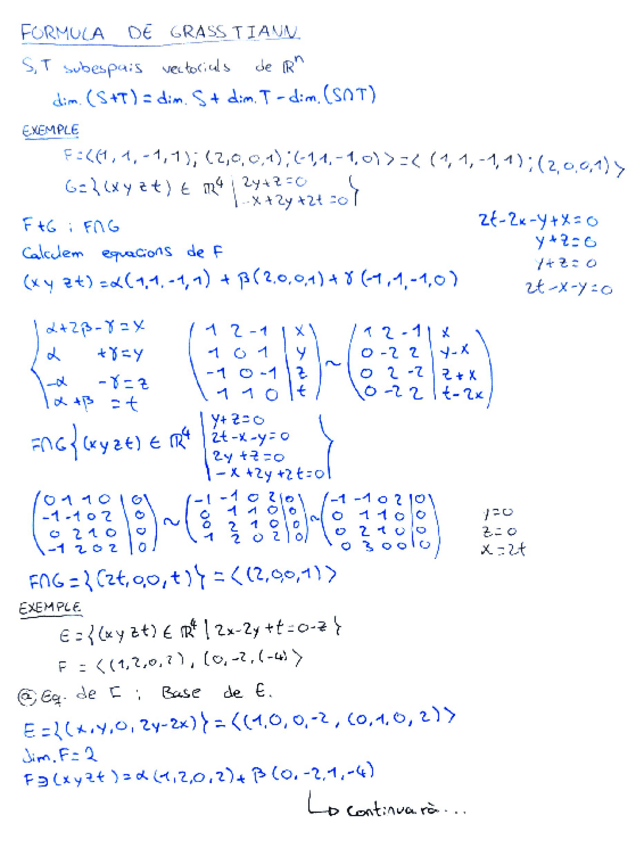 FORMULA DE GRASSTIANN.
S,T subespais vectorials de ℝⁿ
dim.(S+T)=dim. S+ dim. T - dim.(S∩T)
EXEMPLE
F=<(1, 1, -1, 1); (2,0,0,1); (-1,1,-1,0)> = < (1, 1, -1, 1); (2,0,0,1)>
G={(x y z t) ∈ ℝ⁴ | 2y+z=0
-x+2y+2t=0}
F+G i F∩G
Calculem equacions de F
(x y z t)=α(1,1,-1,1) + β(2,0,0,1)+γ(-1,1,-1,0)
2t-2x-y+x=0
y+z=0
y+z=0
2t-x-y=0
α+2β-γ=x
α +γ=y
-α -γ=z
α+β =t
(1 2 -1 | x) (1 2 -1 | x)
(1 0 1 | y) ~ (0 -2 2 | y-x)
(-1 0 -1 | z) (0 2 -2 | z+x)
(1 1 0 | t) (0 -2 2 | t-2x)
F∩G{(x y z t) ∈ ℝ⁴ | y+z=0
2t-x-y=0
2y+z=0
-x+2y+2t=0}
(0 1 1 0 | 0) (-1 -1 0 2 | 0) (-1 -1 0 2 | 0)
(-1 -1 0 2 | 0) ~ (0 1 1 0 | 0) ~ (0 1 1 0 | 0)
(0 2 1 0 | 0) (0 2 1 0 | 0) (0 2 1 0 | 0)
(-1 2 0 2 | 0) (1 2 0 2 | 0) (0 3 0 0 | 0)
y=0
z=0
x=2t
F∩G={(2t,0,0,t)}=<(2,0,0,1)>
EXEMPLE
E={(x y z t) ∈ ℝ⁴ | 2x-2y+t=0=z}
F = <(1,2,0,2), (0,-2,1-4)>
(a) Eq. de F i Base de E.
E={(x,y,0,2y-2x)}=<(1,0,0,-2, (0,1,0,2)>
dim.F=2
F∋(x y z t)=α(1,2,0,2)+β(0,-2,1,-4)
↳ continuarà...